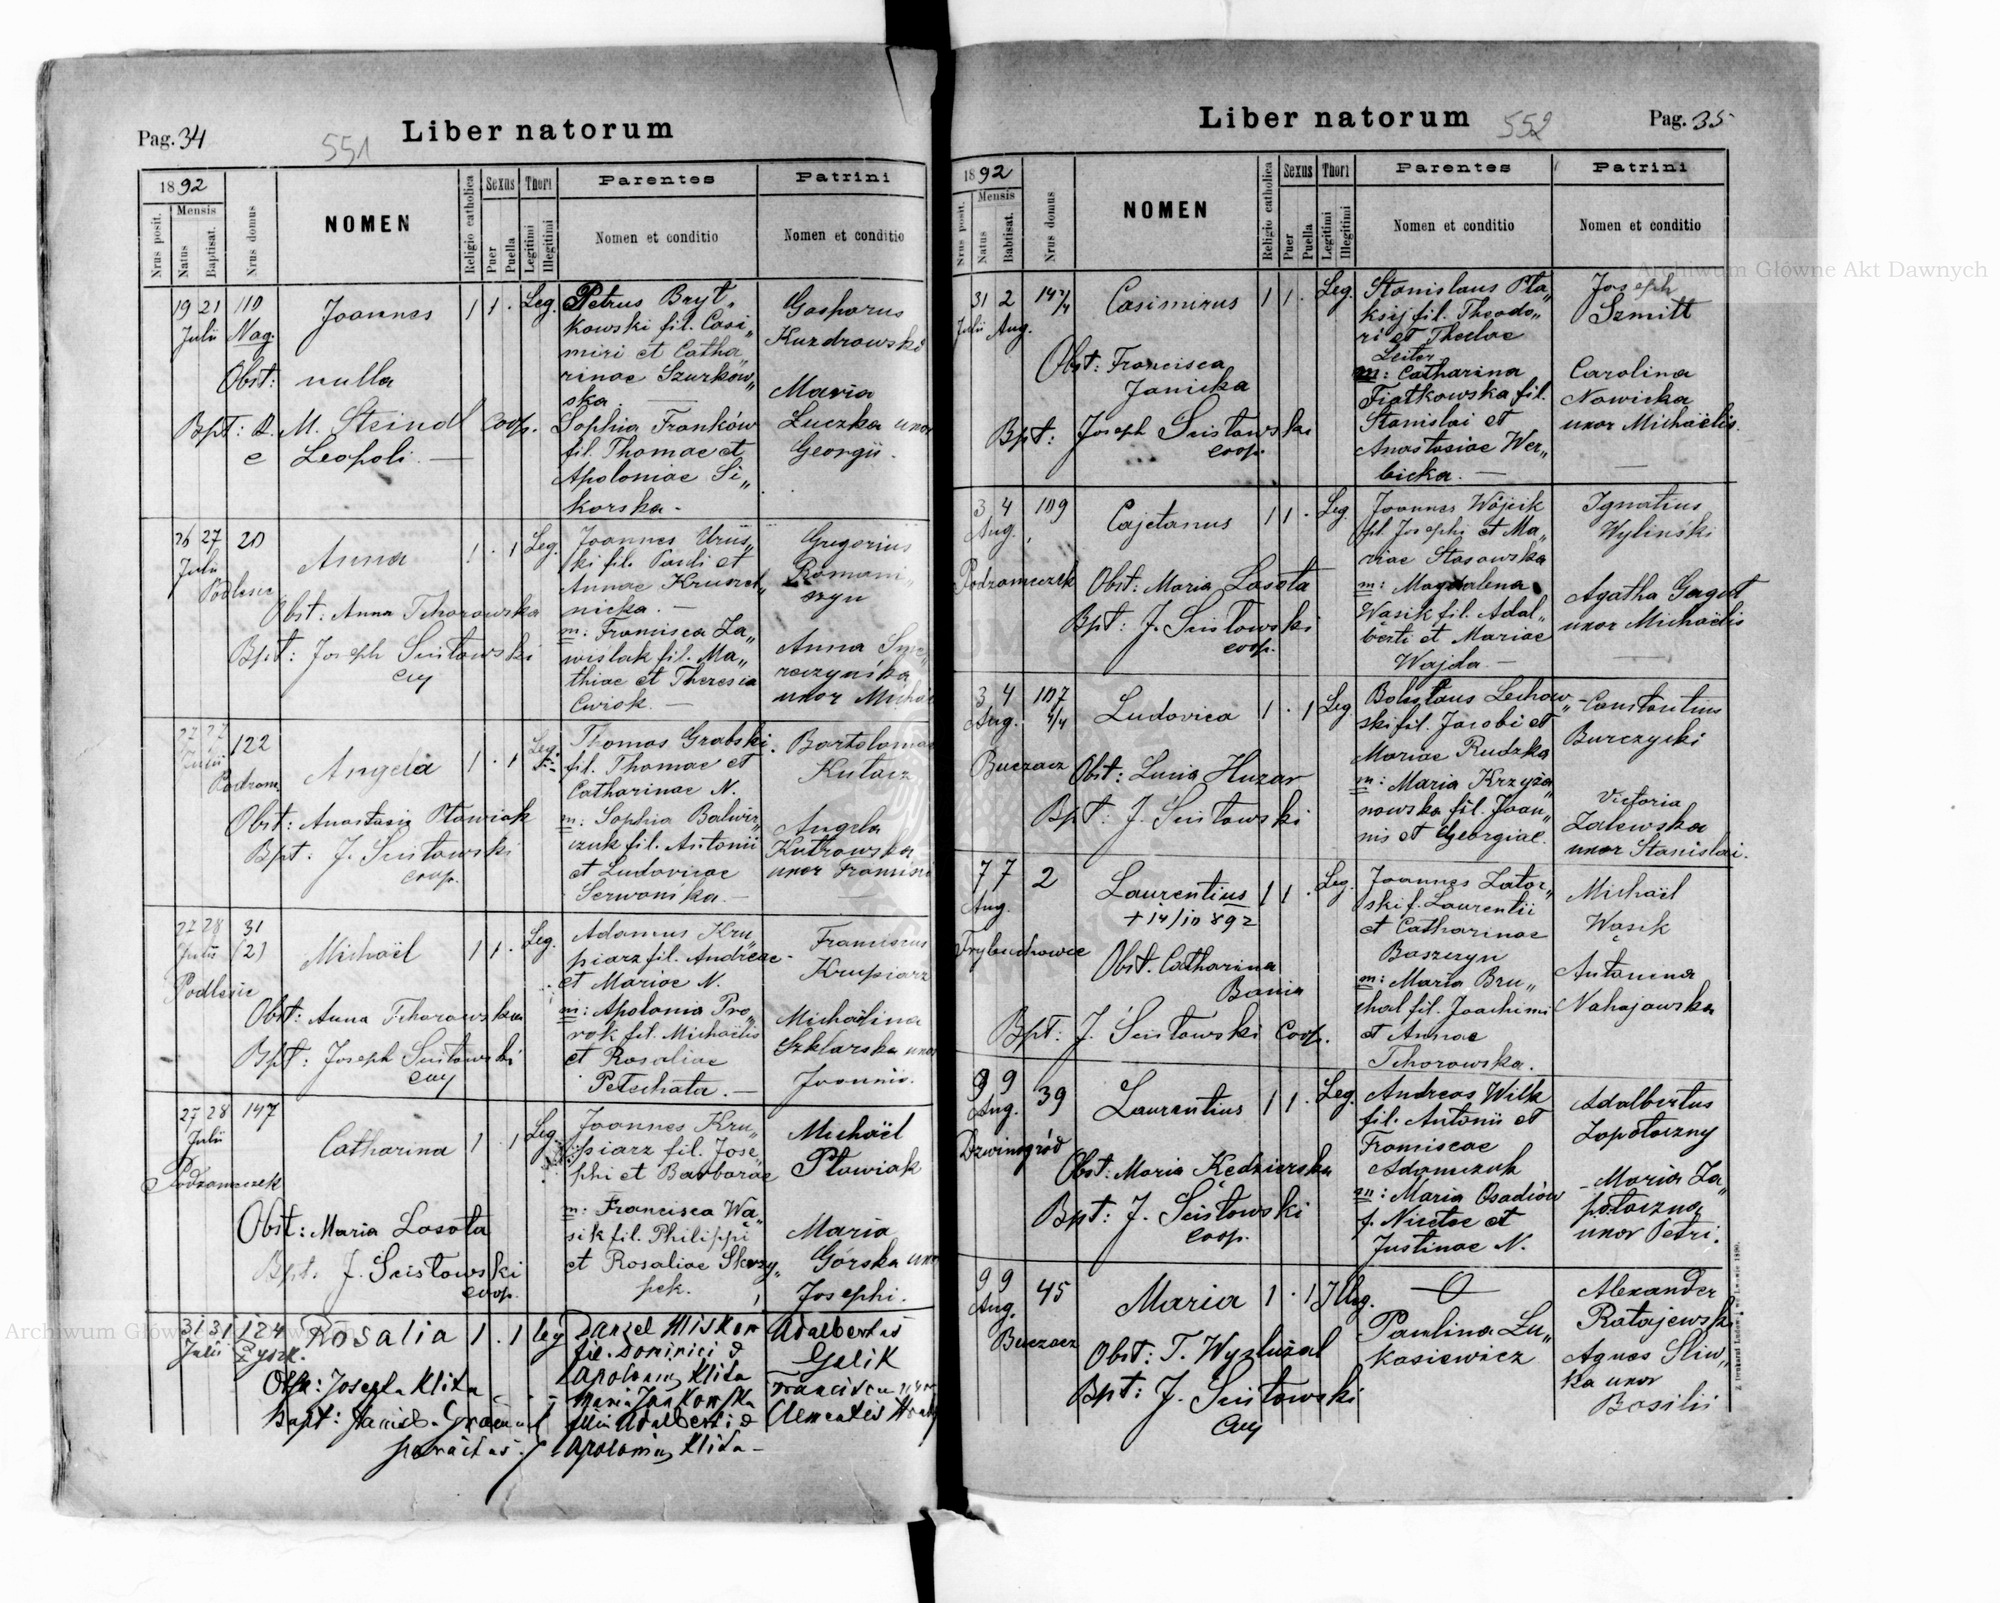 Pag. 34
551
Liber natorum
1892
Nrus posit.
Mensis
Natus
Baptisat.
Nrus domus
NOMEN
Religio catholica
Sexus
Puer
Puella
Thori
Legitimi
Illegitimi
Parentes
Nomen et conditio
Patrini
Nomen et conditio
19 21 110
Julii Nag.
Joannes
1 1 . Leg.
Obst: nulla
Bpt: R. M. Steindl Coop.
e Leopoli. —
Petrus Bryt„
kowski fil. Casi„
miri et Catha„
rinae Szurkow„
ska. —
Sophia Franków
fil. Thomae et
Apoloniae Si„
korska -
Gasparus
Kuzdrowski
Maria
Luczka uxor
Georgii.
26 27 20
Julii
Podlesie
Anna
1 . 1 Leg.
Obst: Anna Tchorowska
Bpt: Joseph Scisłowski
Joannes Urus„
ki fil. Pauli et
Annae Kruszel„
nicka. —
m: Francisca Za„
wislak fil. Ma„
thiae et Theresia
Cwiok. —
Gregorius
Romani
szyn
Anna
uxor
27 27 122
Julii
Podzam.
Angela
1 . 1 Leg.
Obst: Anastasia Pławiak
Bpt. J. Scisłowski
coop.
Thomas Grabski
fil. Thomae et
Catharinae N.
m: Sophia Balwir„
czuk fil. Antonii
et Ludovicae
Bartolomae
Kutasz
Angela
Kutrowska
uxor Francisci
27 28 31
Julii (2)
Podlesie
Michaël
1 1 . Leg.
Obst: Anna Tchorowska
Bpt: Joseph Scisłowski
Adamus Kru
piarz fil. Andreae
et Mariae N.
m: Apolonia Pro„
rok fil. Michaëlis
et Rosaliae
Petschata. —
Franciscus
Krupiarz
Michaëlina
Szklarska uxor
Joannis.
27 28 147
Julii
Podzameczek
Catharina
1 . 1 Leg.
Obst: Maria Lasota
Bpt. J. Scisłowski
coop.
Joannes Kru„
piarz fil. Jose„
phi et Barbarae
m: Francisca Wa„
sik fil. Philippi
et Rosaliae Skrzy„
pek.
Michaël
Pławiak
Maria
Górska uxor
Josephi.
31 31 124
Julii
Rosalia
1 . 1 leg
Obst: Josepha Klita
Bapt:
Daniel Miskow
fil. Dominici &
Apoloniae Klita
Maria Jankowska
filia Adalberti &
Apoloniae Klita —
Adalbertus
Galik
Francisca uxor
Clementis
Liber natorum
552
Pag. 35
1892
Nrus posit.
Mensis
Natus
Babtisat.
Nrus domus
NOMEN
Religio catholica
Sexus
Puer
Puella
Thori
Legitimi
Illegitimi
Parentes
Nomen et conditio
Patrini
Nomen et conditio
Archiwum Główne Akt Dawnych
31 2
Julii Aug.
Casimirus
1 1 . Leg.
Obst: Francisca
Janicka
Bpt: Joseph Scisłowski
coop.
Stanislaus Pła„
ksij fil. Theodo„
ri et Theclae
Leiter
m: Catharina
Fiałkowska fil.
Stanislai et
Anastasiae Wer„
bicka. —
Joseph
Szmitt
Carolina
Nowicka
uxor Michaëlis.
3 4 109
Aug.
Podzameczek
Cajetanus
1 1 . Leg.
Obst: Maria Lasota
Bpt: J. Scisłowski
coop.
Joannes Wójcik
fil. Josephi et Ma„
riae Stasowska
m: Magdalena
Wąsik fil. Adal„
berti et Mariae
Wajda —
Ignatius
Wyliński
Agatha
uxor Michaëlis
3 4 107
Aug. 4/4
Buczacz
Ludovica
1 . 1 Leg
Obst: Lucia Huzar
Bpt: J. Scisłowski
Boleslaus Lechow„
ski fil. Jacobi et
Mariae Rudzka
m: Maria Krzyża„
nowska fil. Joan„
nis et Georgiae.
Constantinus
Burczycki
Victoria
Zalewska
uxor Stanislai.
7 7 2
Aug.
Trybuchowce
Laurentius
+ 14/10 892
1 1 . Leg.
Obst. Catharina
Bania
Bpt: J. Scisłowski Coop.
Joannes Zator„
ski f. Laurentii
et Catharinae
Baszczyn
m: Maria Bru„
chal fil. Joachimi
et Annae
Tchorowska.
Michaël
Wąsik
Antonina
Nahajowska
9 9 39
Aug.
Dzwinogród
Laurentius
1 1 . Leg.
Obst: Maria Kędzierska
Bpt: J. Scisłowski
coop.
Andreas Wilk
fil. Antonii et
Franciscae
Adamczuk
m: Maria Osadców
f. Nicetae et
Justinae N.
Adalbertus
Zapotoczny
Maria Za„
potoczna
uxor Petri.
9 9 45
Aug.
Buczacz
Maria
1 . 1 Illeg.
Obst: T. Wyzlużal
Bpt: J. Scisłowski
— O —
Paulina Łu„
kasiewicz
Alexander
Ratajewski
Agnes Sliw„
ka uxor
Basilii
Archiwum Główne Akt Dawnych